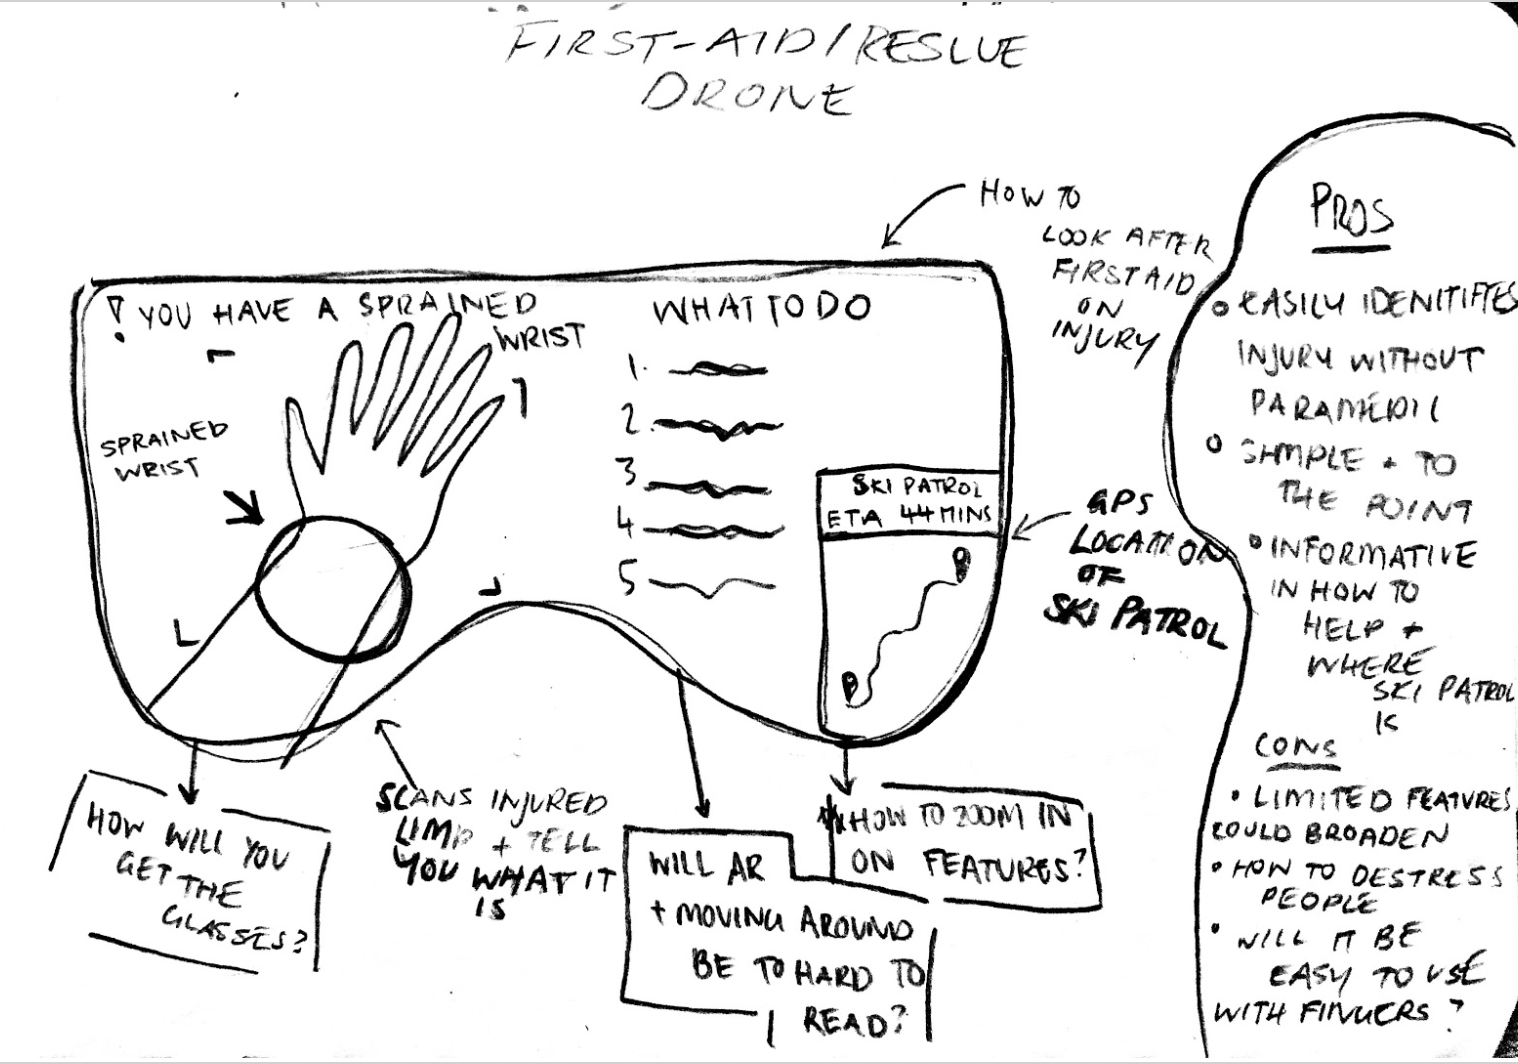 FIRST-AID/RESCUE
DRONE
HOW TO
LOOK AFTER
FIRST AID
ON
INJURY
! YOU HAVE A SPRAINED
WRIST
SPRAINED
WRIST
WHAT TO DO
1.
2.
3
4
5
SKI PATROL
ETA 44 MINS
GPS
LOCATION
OF
SKI PATROL
HOW WILL YOU
GET THE
GLASSES?
SCANS INJURED
LIMP + TELL
YOU WHAT IT
IS
WILL AR
+ MOVING AROUND
BE TO HARD TO
READ?
HOW TO ZOOM IN
ON FEATURES?
PROS
EASILY IDENITIFIES
INJURY WITHOUT
PARAMEDIC
SIMPLE + TO
THE POINT
INFORMATIVE
IN HOW TO
HELP +
WHERE
SKI PATROL
IS
CONS
• LIMITED FEATURES
COULD BROADEN
• HOW TO DESTRESS
PEOPLE
• WILL IT BE
EASY TO USE
WITH FINGERS?